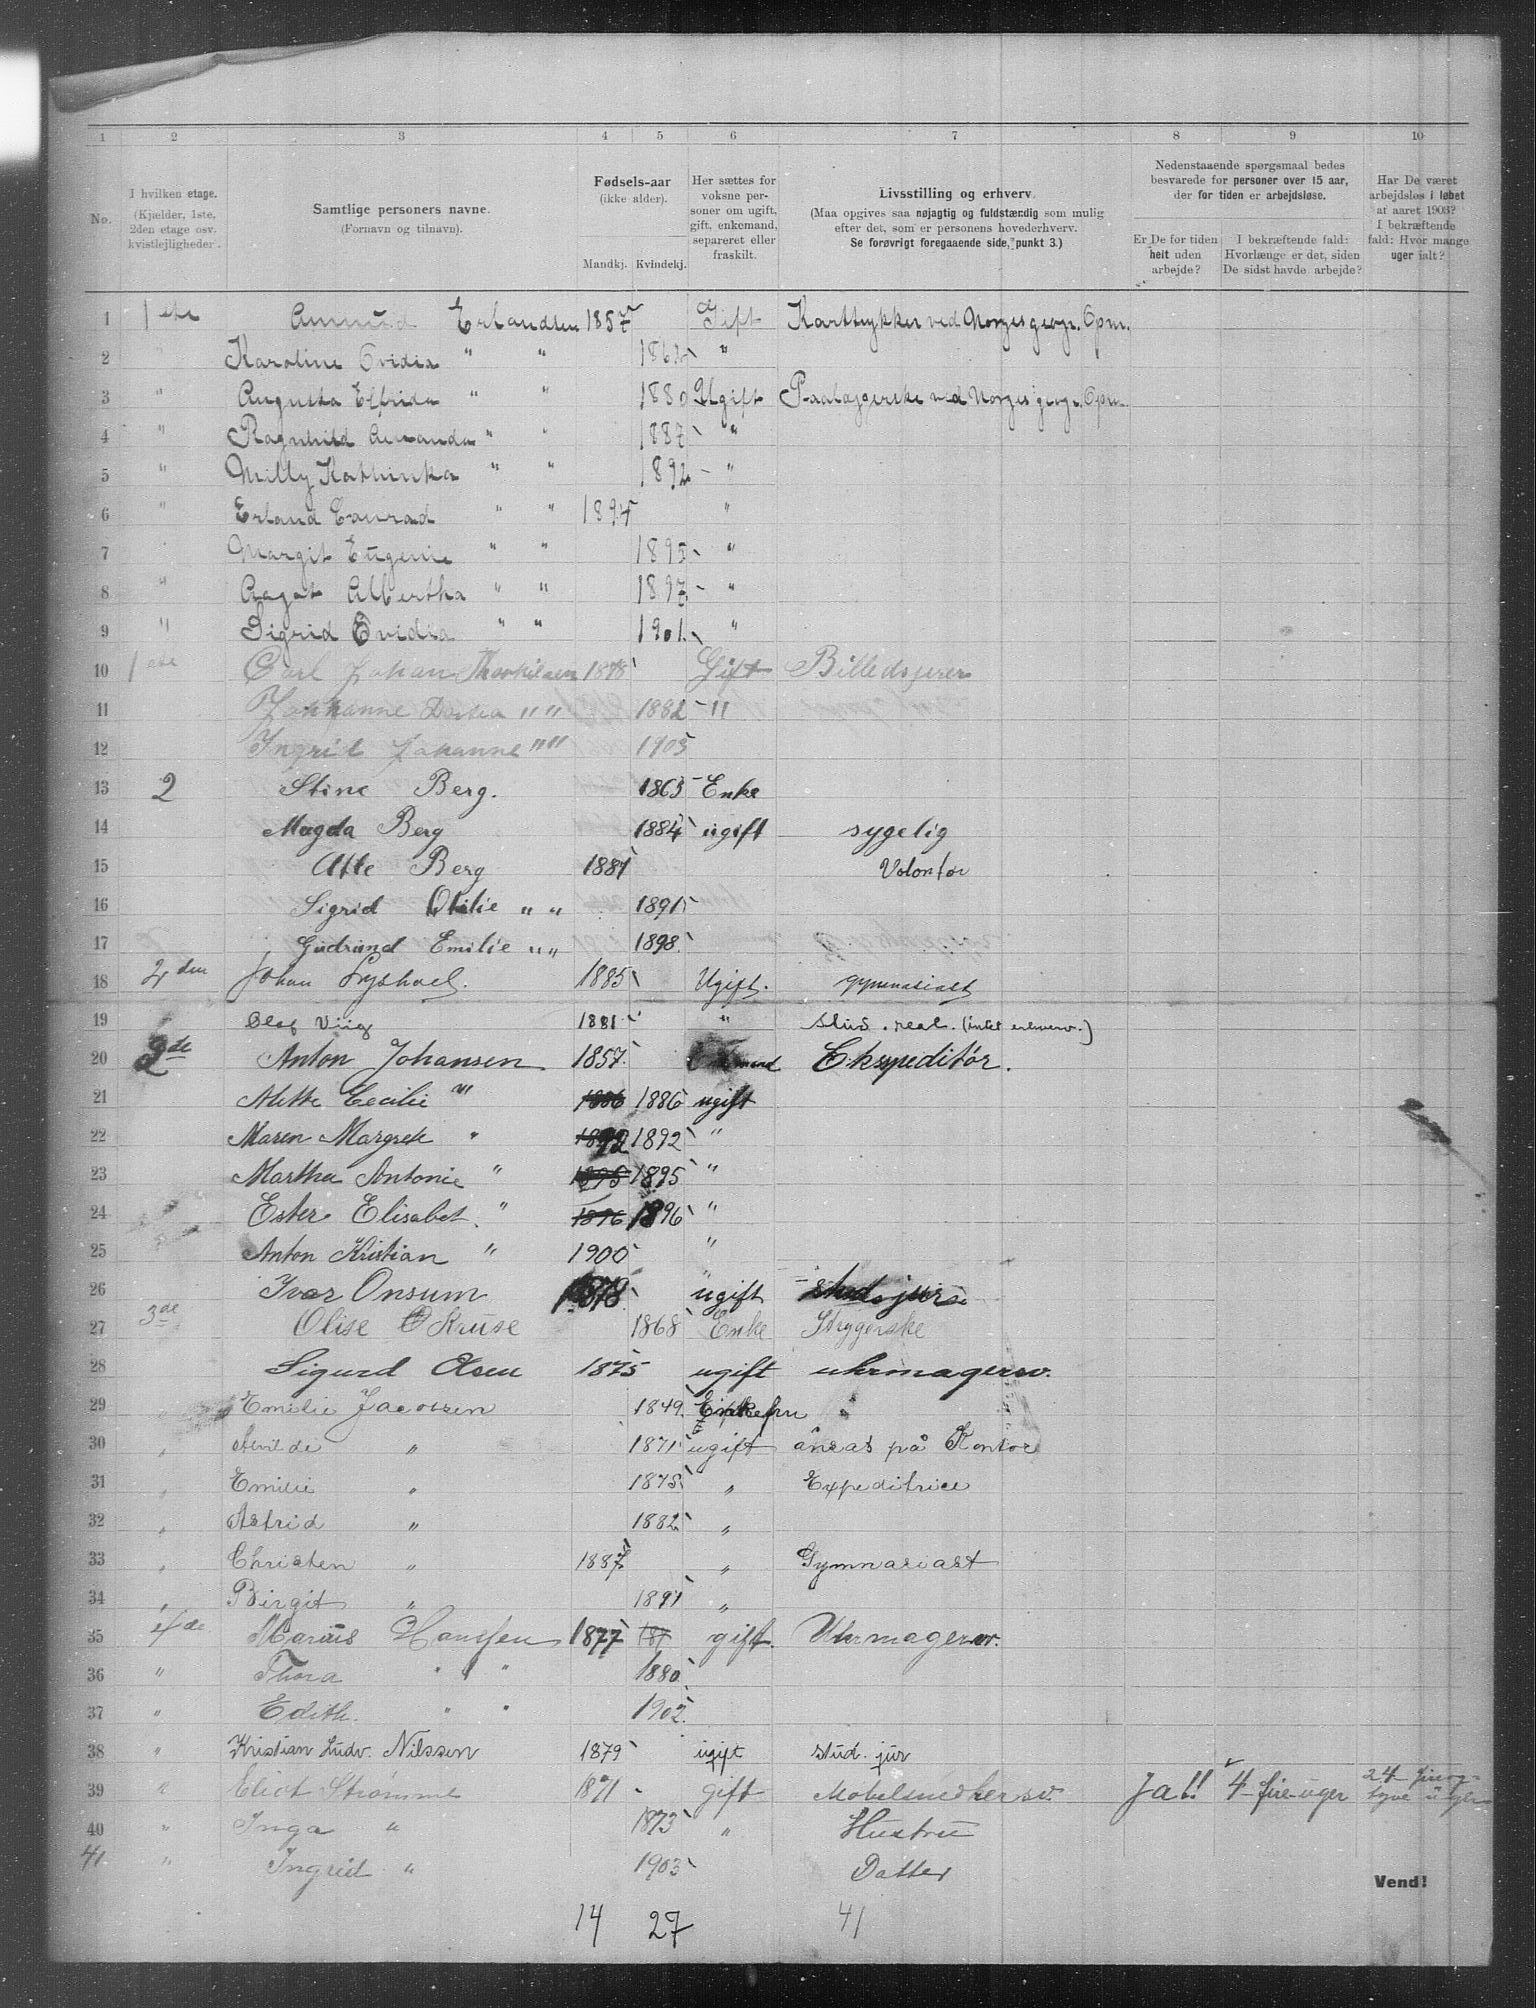 1 2 3 4 5 6 7 8 9 10
No.
I hvilken etage.
(Kjælder, 1ste, 2den etage osv. kvistlejligheder.)
Samtlige personers navne.
(Fornavn og tilnavn).
Fødsels-aar
(ikke alder).
Mandkj. Kvindekj.
Her sættes for voksne personer om ugift, gift, enkemand, separeret eller fraskilt.
Livsstilling og erhverv.
(Maa opgives saa nøjagtig og fuldstændig som mulig efter det, som er personens hovederhverv.
Se forøvrigt foregaaende side, punkt 3.)
Nedenstaaende spørgsmaal bedes besvarede for personer over 15 aar, der for tiden er arbejdsløse.
Er De for tiden heit uden arbejde?
I bekræftende fald: Hvorlænge er det, siden De sidst havde arbejde?
Har De været arbejdsløs i løbet af aaret 1903?
I bekræftende fald: Hvor mange uger ialt?
1 1 ete Amund Erlandsen 1857 Gift Karttrykker ved Norges geogr. Opm.
2 " Karoline Ovidia " " 1862 "
3 " Augusta Elfrida " " 1880 Ugift Paalæggerske ved Norges geogr. Opm.
4 " Ragnhild Amanda " " 1887 "
5 " Milly Kathinka " " 1892 "
6 " Erland Conrad " " 1894 "
7 Margit Eugenie " " 1895 "
8 " Aagot Albertha " " 1897 "
9 " Sigrid Ovidia " " 1901 "
10 1 ete Carl Johan Thorkilsen 1878 Gift Billedskjerer
11 Johanne Dortea " " 1882 "
12 Ingrid Johanne " " 1903
13 2 Stine Berg. 1863 Enke
14 Magda Berg 1884 ugift sygelig
15 Atle Berg 1887 Volontør
16 Sigrid Otilie " " 1891
17 Gudrund Emilie " " 1898
18 2 den Johan Lyshoel. 1885 Ugift. gymnasiast
19 Olaf Viig 1881 " stud. real. (intet erhverv.)
20 2 de Anton Johansen 1857 Ekspeditør.
21 Mette Cecilie " 1886 1886 ugift
22 Maren Margrete " 1892 1892 "
23 Martha Antonie " 1895 1895 "
24 Ester Elisabet " 1896 1896 "
25 Anton Kristian " 1900 "
26 Ivar Onsum 1878 ugift stud. juris
27 3 de Olise O Kruse 1868 Enke Strygerske
28 Sigurd Olsen 1875 ugift uhrmagersv.
29 " Emilie Jacobsen 1849 Enkefru "
30 " Alvilde " 1871 ugift ansat på Kontor
31 " Emilie " 1878 " Expeditrice
32 " Astrid " 1882 "
33 " Christen " 1887 " Gymnasiast
34 " Birgit " 1891 "
35 4 de Marius Hanssen 1877 187 gift. Uhrmagersv.
36 " Thora " " 1880
37 " Edith. " " 1902
38 " Kristian Ludv. Nilssen 1879 ugift stud. jur
39 " Eliot Strømme 1871 gift Møbelsnedkersv. Ja!! 4 fire uger 24 fireogtyve uger
40 " Inga " 1873 " Hustru
41 " Ingrid " 1903 Datter
Vend!
14 27 41